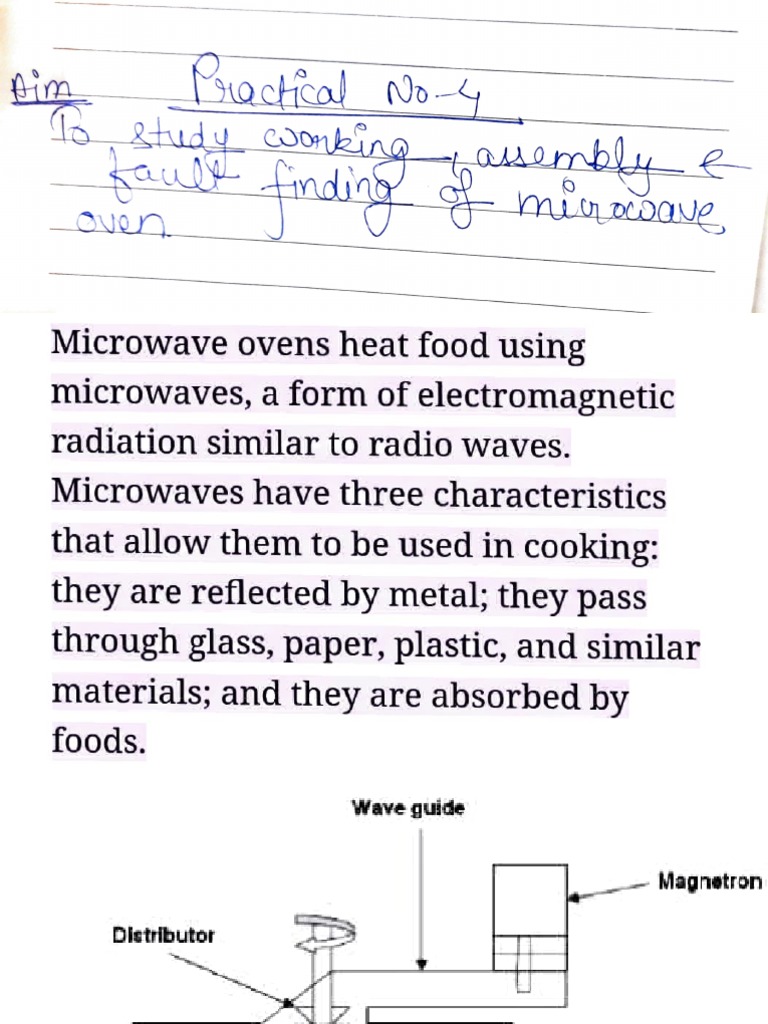 Practical No-4
Aim
To study working, assembly &
fault finding of microwave
oven
Microwave ovens heat food using
microwaves, a form of electromagnetic
radiation similar to radio waves.
Microwaves have three characteristics
that allow them to be used in cooking:
they are reflected by metal; they pass
through glass, paper, plastic, and similar
materials; and they are absorbed by
foods.
Wave guide
Magnetron
Distributor